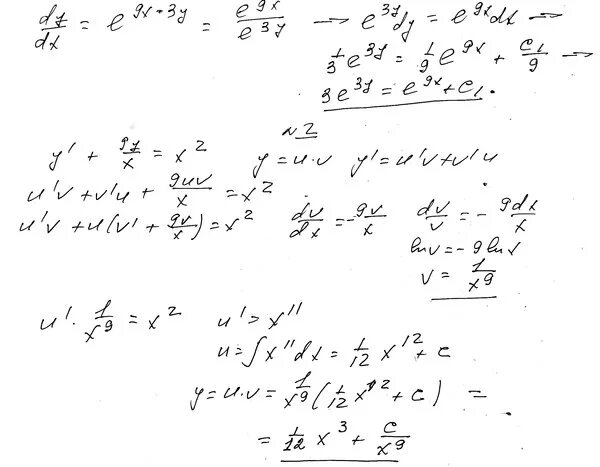 dy/dx = e^{9x-3y} = e^{9x}/e^{3y} → e^{3y}dy = e^{9x}dx →
1/3 e^{3y} = 1/9 e^{9x} + C₁/9 →
3e^{3y} = e^{9x} + C₁.
N2
y' + 9y/x = x² y = u·v y' = u'v + v'u
u'v + v'u + 9uv/x = x²
u'v + u(v' + 9v/x) = x² dv/dx = -9v/x dv/v = -9dx/x
lnv = -9lnx
v = 1/x⁹
u' · 1/x⁹ = x² u' = x¹¹
u = ∫x¹¹dx = 1/12 x¹² + c
y = u·v = 1/x⁹ (1/12 x¹² + c) =
= 1/12 x³ + c/x⁹